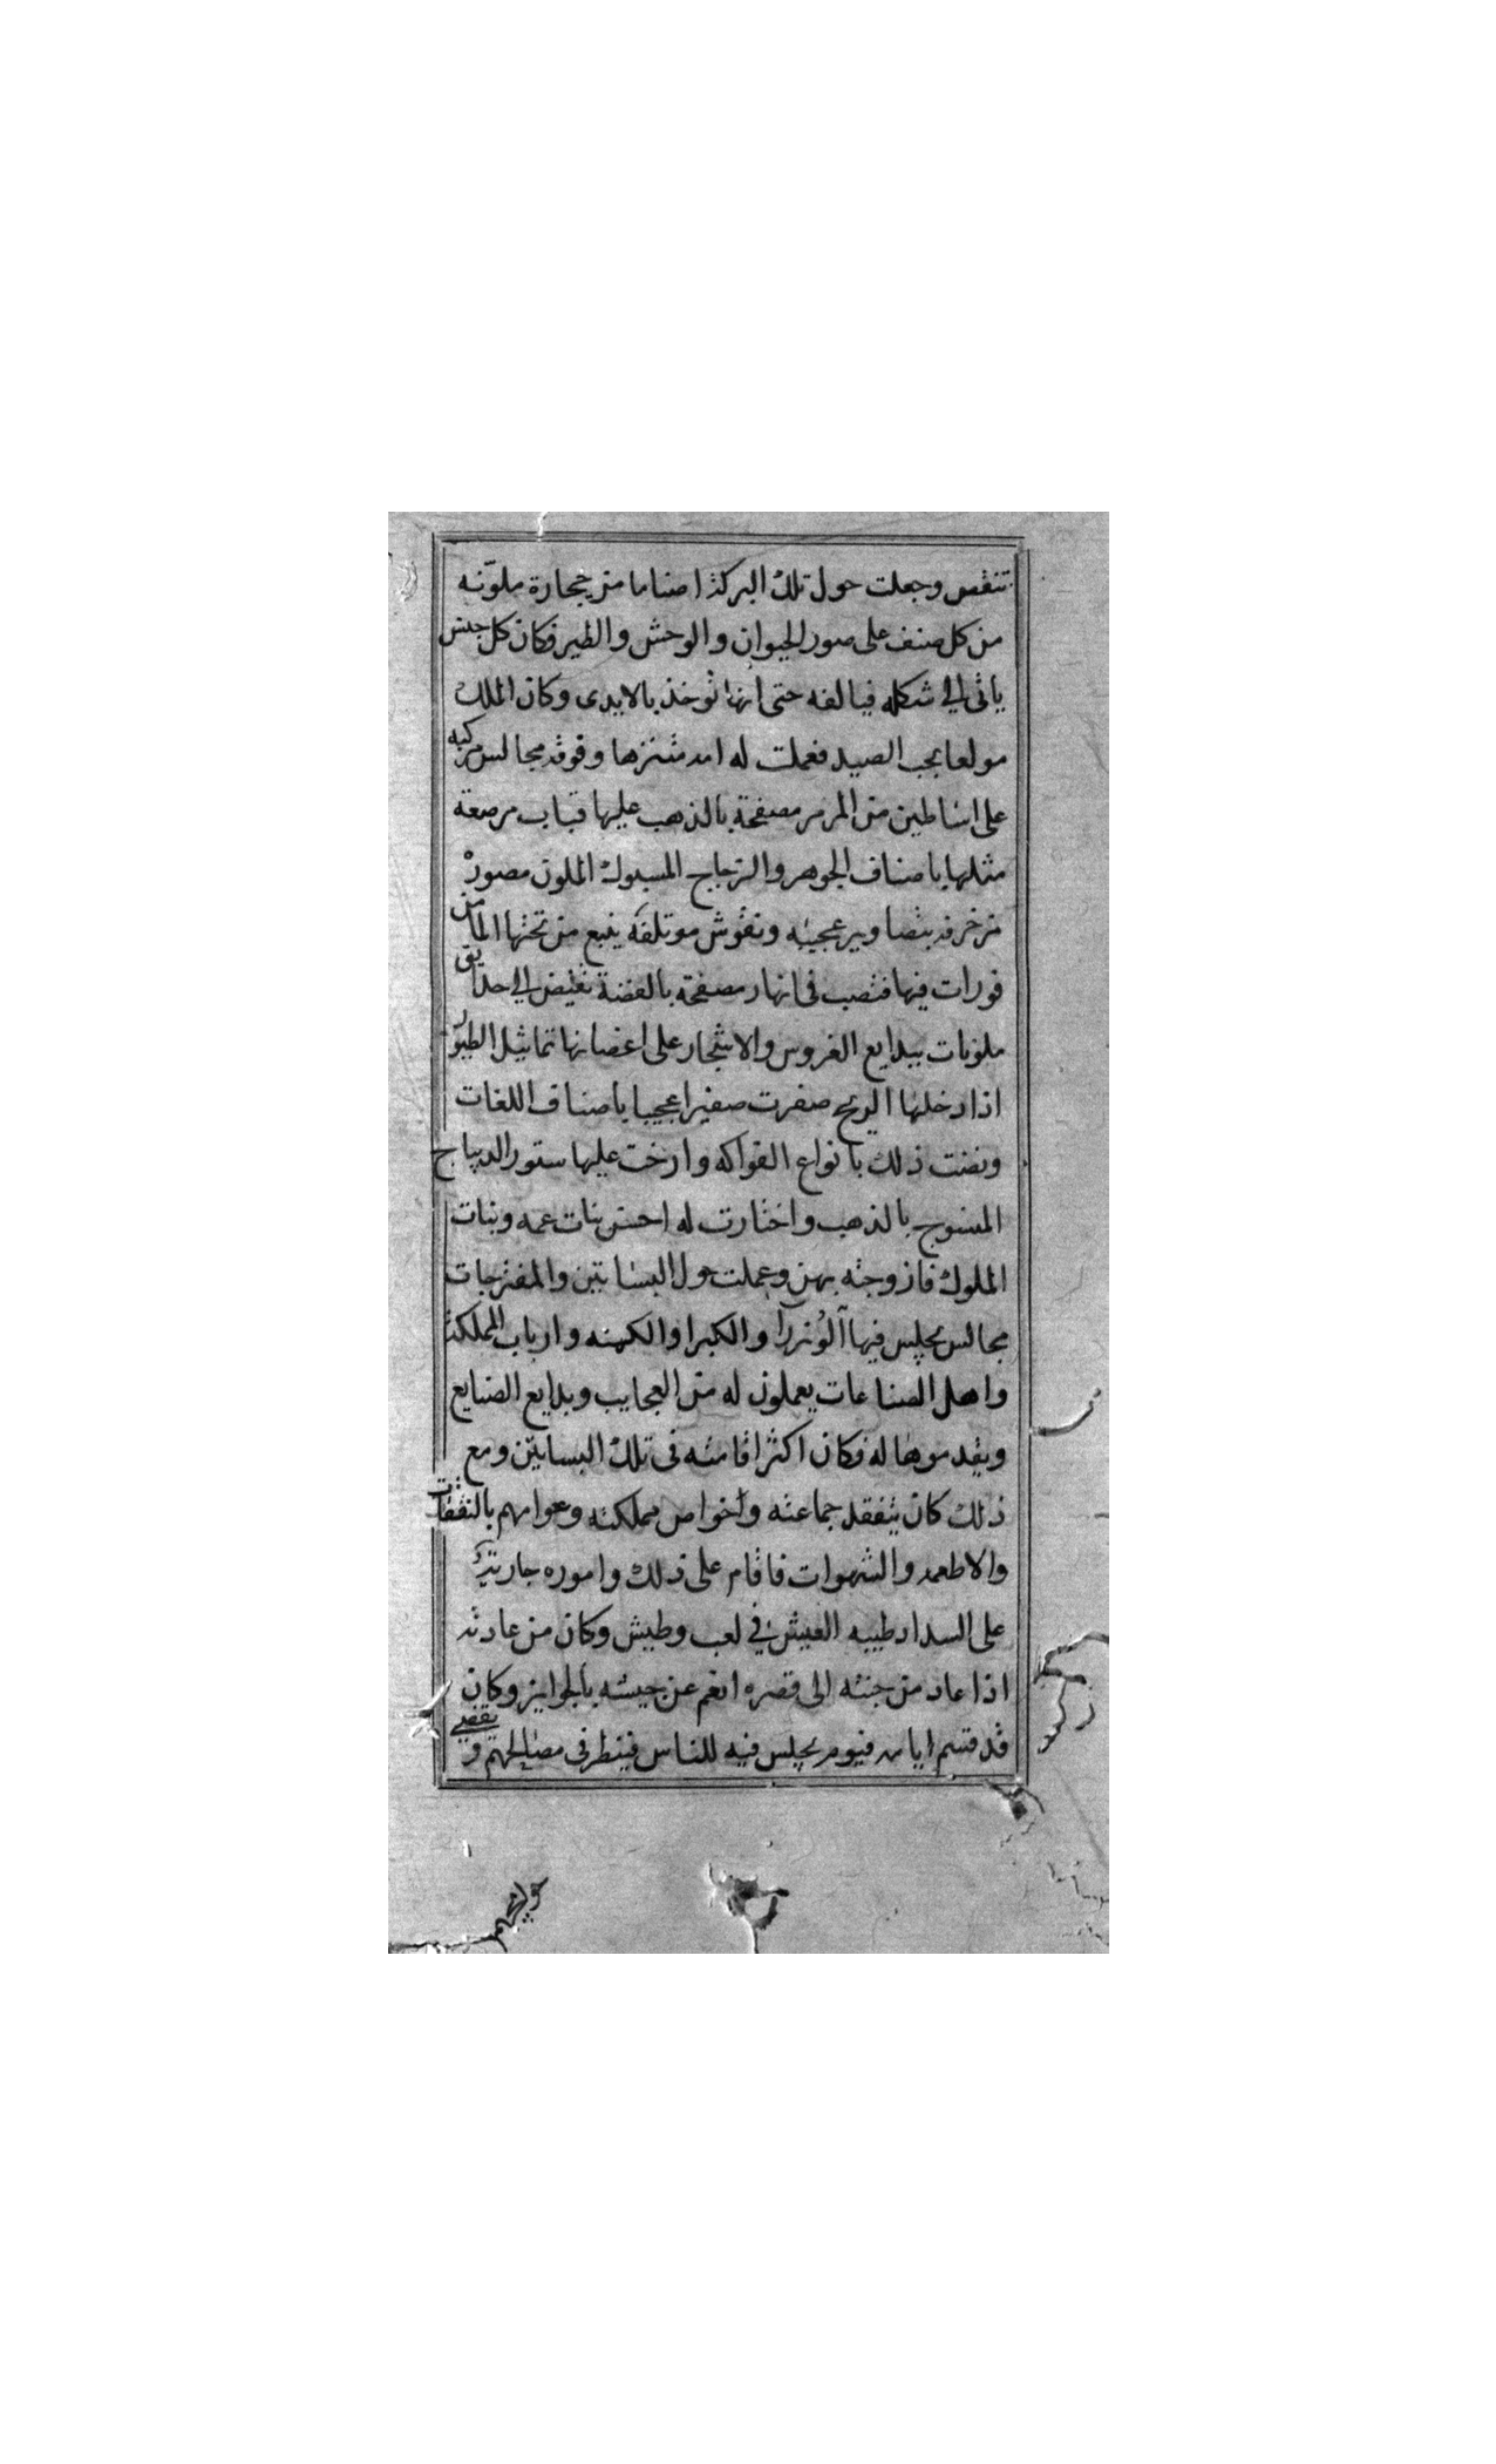 تنقص وجعلت حول تلك البركة اصناما من حجارة ملونه
من كل صنف على صور الحيوان والوحش والطير فكان كل جنس
ياتى الى شكله فيالفه حتى انها توخذ بالايدى وكان الملك
مولعا بحب الصيد فعملت له امه متنزها وفوقه مجالس مركبه
على اساطين من المرمر مصفحة بالذهب عليها قباب مرصعة
مثلها باصناف الجوهر والزجاج المسبوك الملون مصورة
مزخرفه بتصاوير عجيبه ونقوش موتلفه ينبع من تحتها الما من
فورات فيها فتصب فى انهار مصفحة بالفضة تفيض الى حدايق
ملونات ببدايع الغروس والاشجار على اغصانها تماثيل الطيور
اذا دخلها الريح صفرت صفيرا عجيبا باصناف اللغات
ونضت ذلك بانواع الفواكه وارخت عليها ستور الديباج
المنسوج بالذهب واختارت له احسن بنات عمه وبنات
الملوك فازوجته بهن وعملت حول البساتين والمفترجات
مجالس يجلس فيها الوزرآ والكبرا والكهنه وارباب المملكة
واهل الصناعات يعملون له من العجايب وبدايع الصنايع
ويقدموها له فكان اكثر اقامته فى تلك البساتين ومع
ذلك كان يتفقد جماعته واخواص مملكته وعوامهم بالنفقات
والاطعمه والشهوات فاقام على ذلك واموره جارية
على السداد طيبه العيش فى لعب وطيش وكان من عادته
اذا عاد من جنته الى قصره انعم عن جيشه بالجوايز وكان
قد قسم ايامه فيوم يجلس فيه للناس فينظر فى مصالحهم ويقضى
حوايجهم